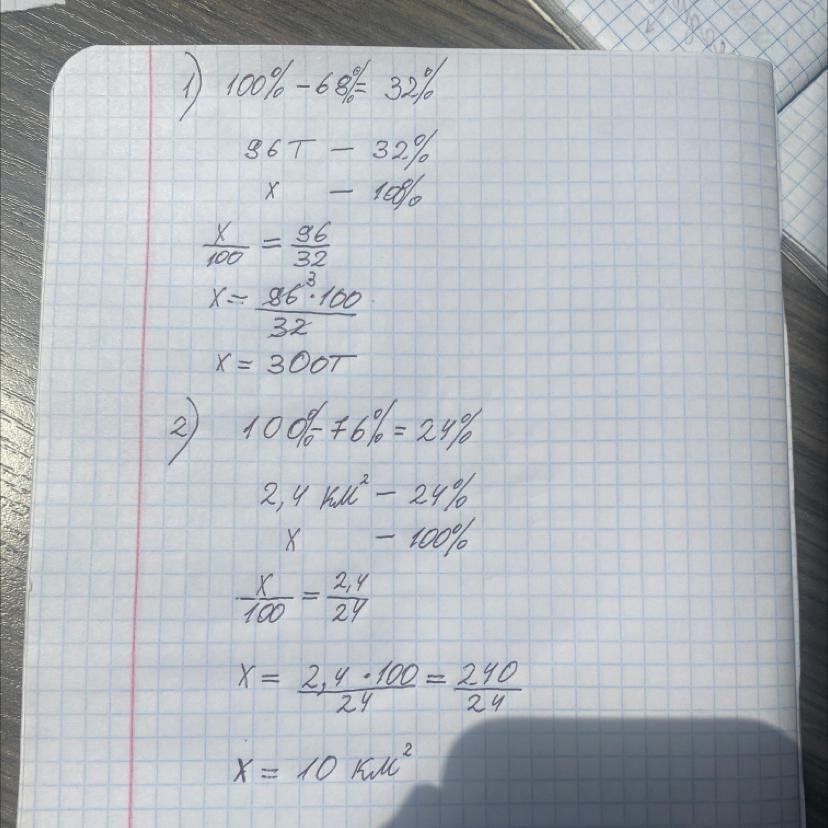 1) 100% - 68% = 32%
96 Т - 32%
х - 100%
х/100 = 96/32
х = 96³·100/32
х = 300Т
2) 100% - 76% = 24%
2,4 км² - 24%
х - 100%
х/100 = 2,4/24
х = 2,4·100/24 = 240/24
х = 10 км²